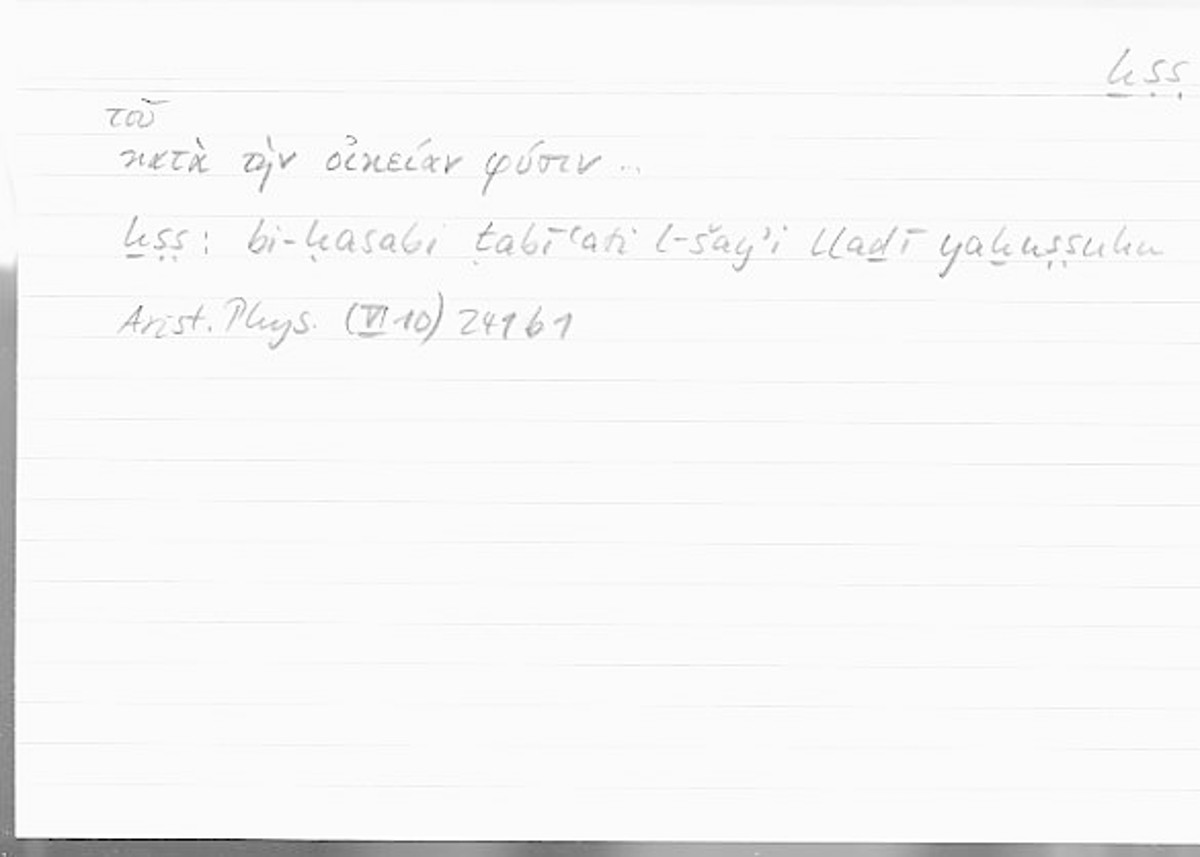 ḫṣṣ
τοῦ
κατὰ τὴν οἰκείαν φύσιν ...
ḫṣṣ: bi-ḥasabi ṭabīʿati l-šayʾi llaḏī yaḫuṣṣuhu
Arist. Phys. (VI 10) 241b1